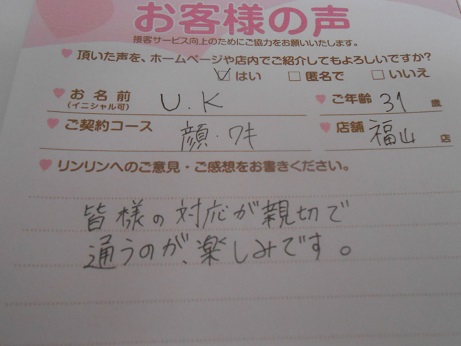 お客様の声
接客サービス向上のためにご協力をお願いいたします。
頂いた声を、ホームページや店内でご紹介してもよろしいですか?
はい 匿名で いいえ
お名前 U.K ご年齢 31 歳
(イニシャル可)
ご契約コース 顔・ワキ 店舗 福山 店
リンリンへのご意見・ご感想をお書きください。
皆様の対応が親切で
通うのが、楽しみです。